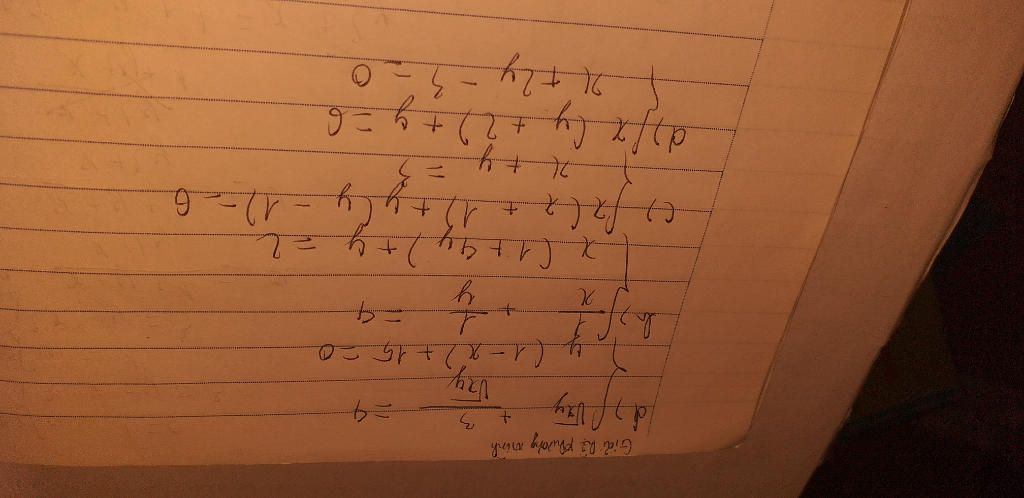 Giải hệ phương trình
a) { √xy + 3/√xy = 4
y (1 - x) + 15 = 0
b) { 1/x + 1/y = 4
x (1 + 4y) + y = 2
c) { x (x + 1) + y (y - 1) = 6
x + y = 3
d) { x (y + 2) + y = 6
x + 2y - 3 = 0